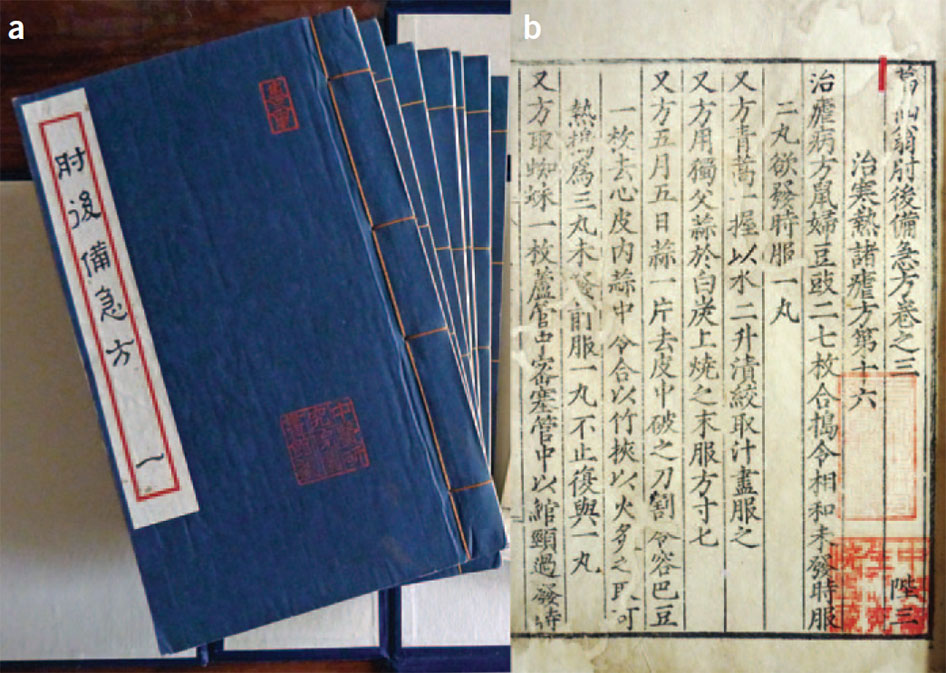 a
肘後備急方
一
b
葛仙翁肘後備急方卷之三 陛三
治寒熱諸瘧方第十六
治瘧病方鼠婦豆豉二七枚合搗令相和未發時服
二丸欲發時服一丸
又方青蒿一握以水二升漬絞取汁盡服之
又方用獨父蒜於白炭上燒之末服方寸七
又方五月五日蒜一片去皮中破之刀割令容巴豆
一枚去心皮內蒜中令合以竹挾以火炙之取可
熱搗爲三丸未發前服一丸不止復與一丸
又方取蜘蛛一枚蘆管中密塞管中以綰頸過發時